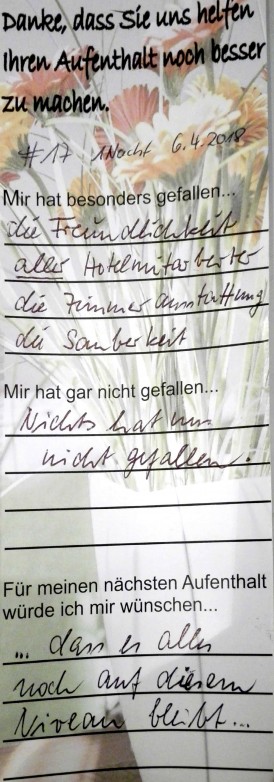 Danke, dass Sie uns helfen
Ihren Aufenthalt noch besser
zu machen.
#17 1 Nacht 6.4.2018
Mir hat besonders gefallen...
die Freundlichkeit
aller Hotelmitarbeiter
die Zimmerausstattung
die Sauberkeit
Mir hat gar nicht gefallen...
Nichts hat uns
nicht gefallen.
Für meinen nächsten Aufenthalt
würde ich mir wünschen...
... dass es alles
noch auf diesem
Niveau bleibt...